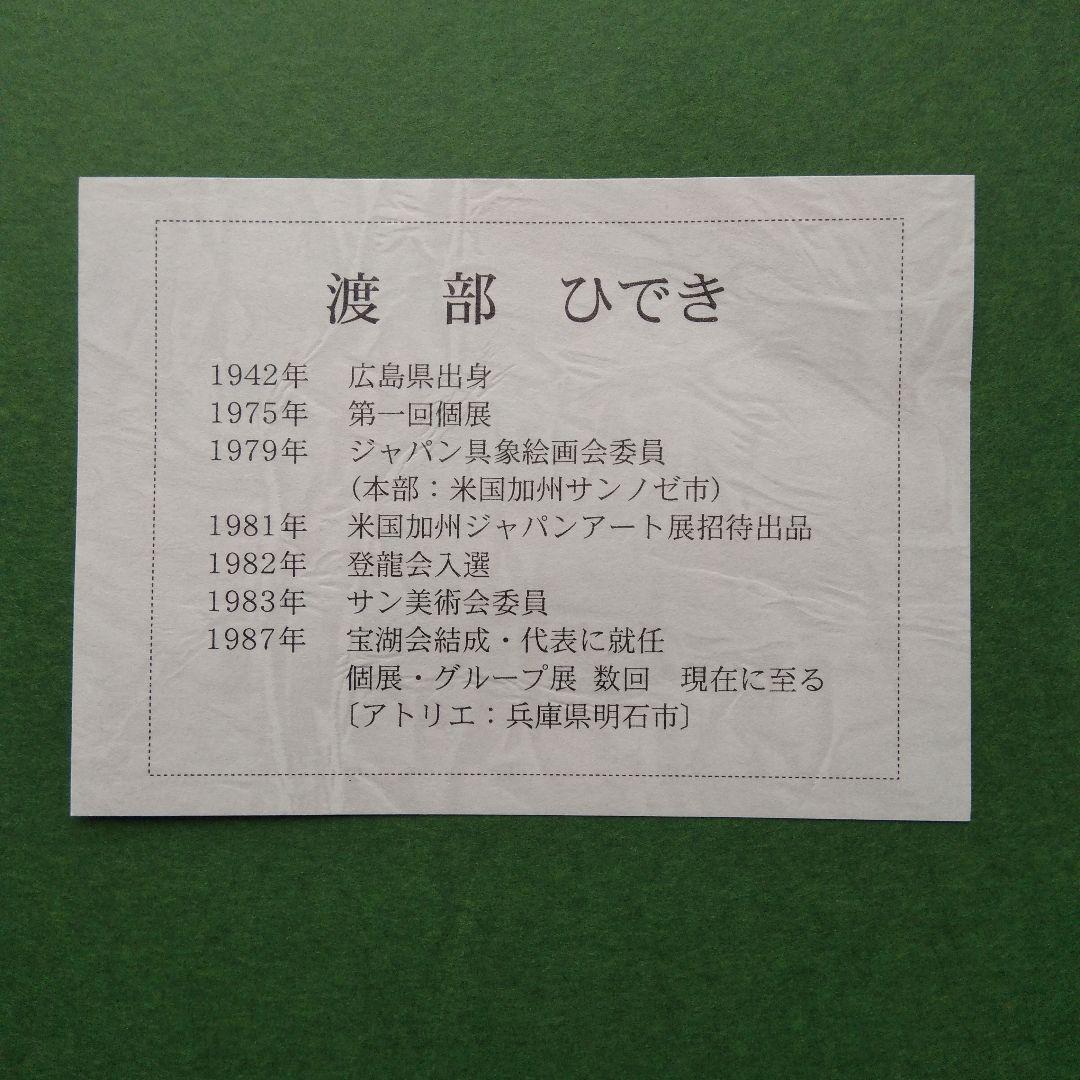 渡 部 ひでき
1942年 広島県出身
1975年 第一回個展
1979年 ジャパン具象絵画会委員
(本部：米国加州サンノゼ市)
1981年 米国加州ジャパンアート展招待出品
1982年 登龍会入選
1983年 サン美術会委員
1987年 宝湖会結成・代表に就任
個展・グループ展 数回 現在に至る
〔アトリエ：兵庫県明石市〕